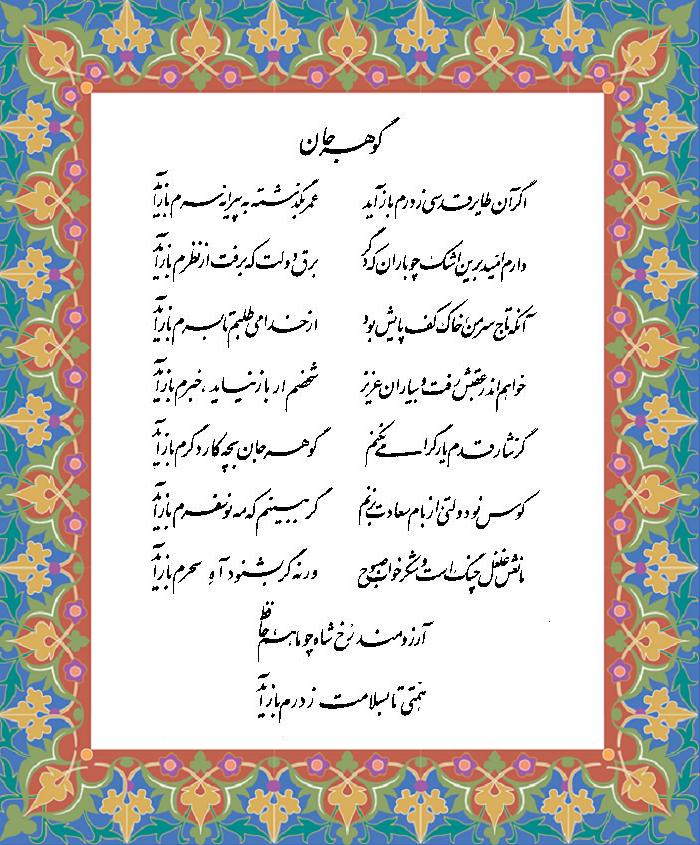 گوهر جان
اگر آن طایر قدسی ز درم باز آید عمر بگذشته به پیرانه سرم باز آید
دارم امید برین اشک چو باران که دگر برق دولت که برفت از نظرم باز آید
آنکه تاج سر من خاک کف پایش بود از خدا می طلبم تا بسرم باز آید
خواهم اندر عقبش رفت و بیاران عزیز شخصم ار باز نیاید، خبرم باز آید
گر نثار قدم یار گرامی نکنم گوهر جان بچه کار دگرم باز آید
کوس نو دولتی از بام سعادت بزنم گر ببینم که مه نو سفرم باز آید
مانعش غلغل چنگ است و شکر خواب صبوح ورنه گر بشنود آه سحرم باز آید
آرزومند رخ شاه چو ماهم حافظ
همتی تا بسلامت ز درم باز آید